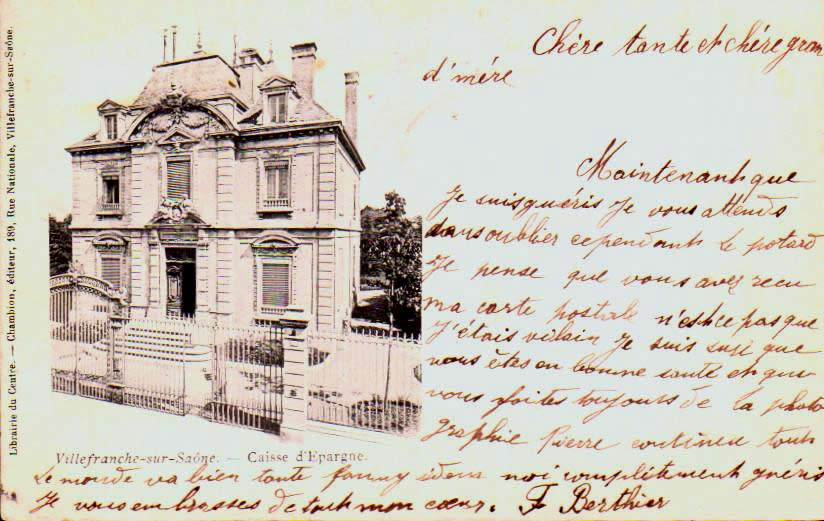 Librairie du Centre. — Chambion, éditeur, 189, Rue Nationale, Villefranche-sur-Saône.
Chère tante et chére gran
d'mére
Maintenant que
Je suis guéris Je vous attends
sans oublier cependant le potard
Je pense que vous avez recu
ma carte postale n'est ce pas que
J'étais vilain Je suis que
vous êtes en bonne santé et que
vous faites toujours de la photo
graphie Pierre continue tout
Villefranche-sur-Saône. — Caisse d'Epargne.
Le monde va bien tante fanny idem moi complètement guéris
Je vous embrasses de tout mon cœur. F Berthier